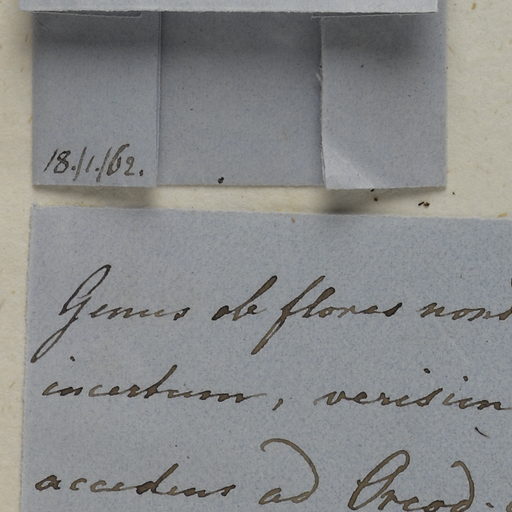 18./1./62.
Genus ob flores non
incertum, verisim
accedens ad Oreod.